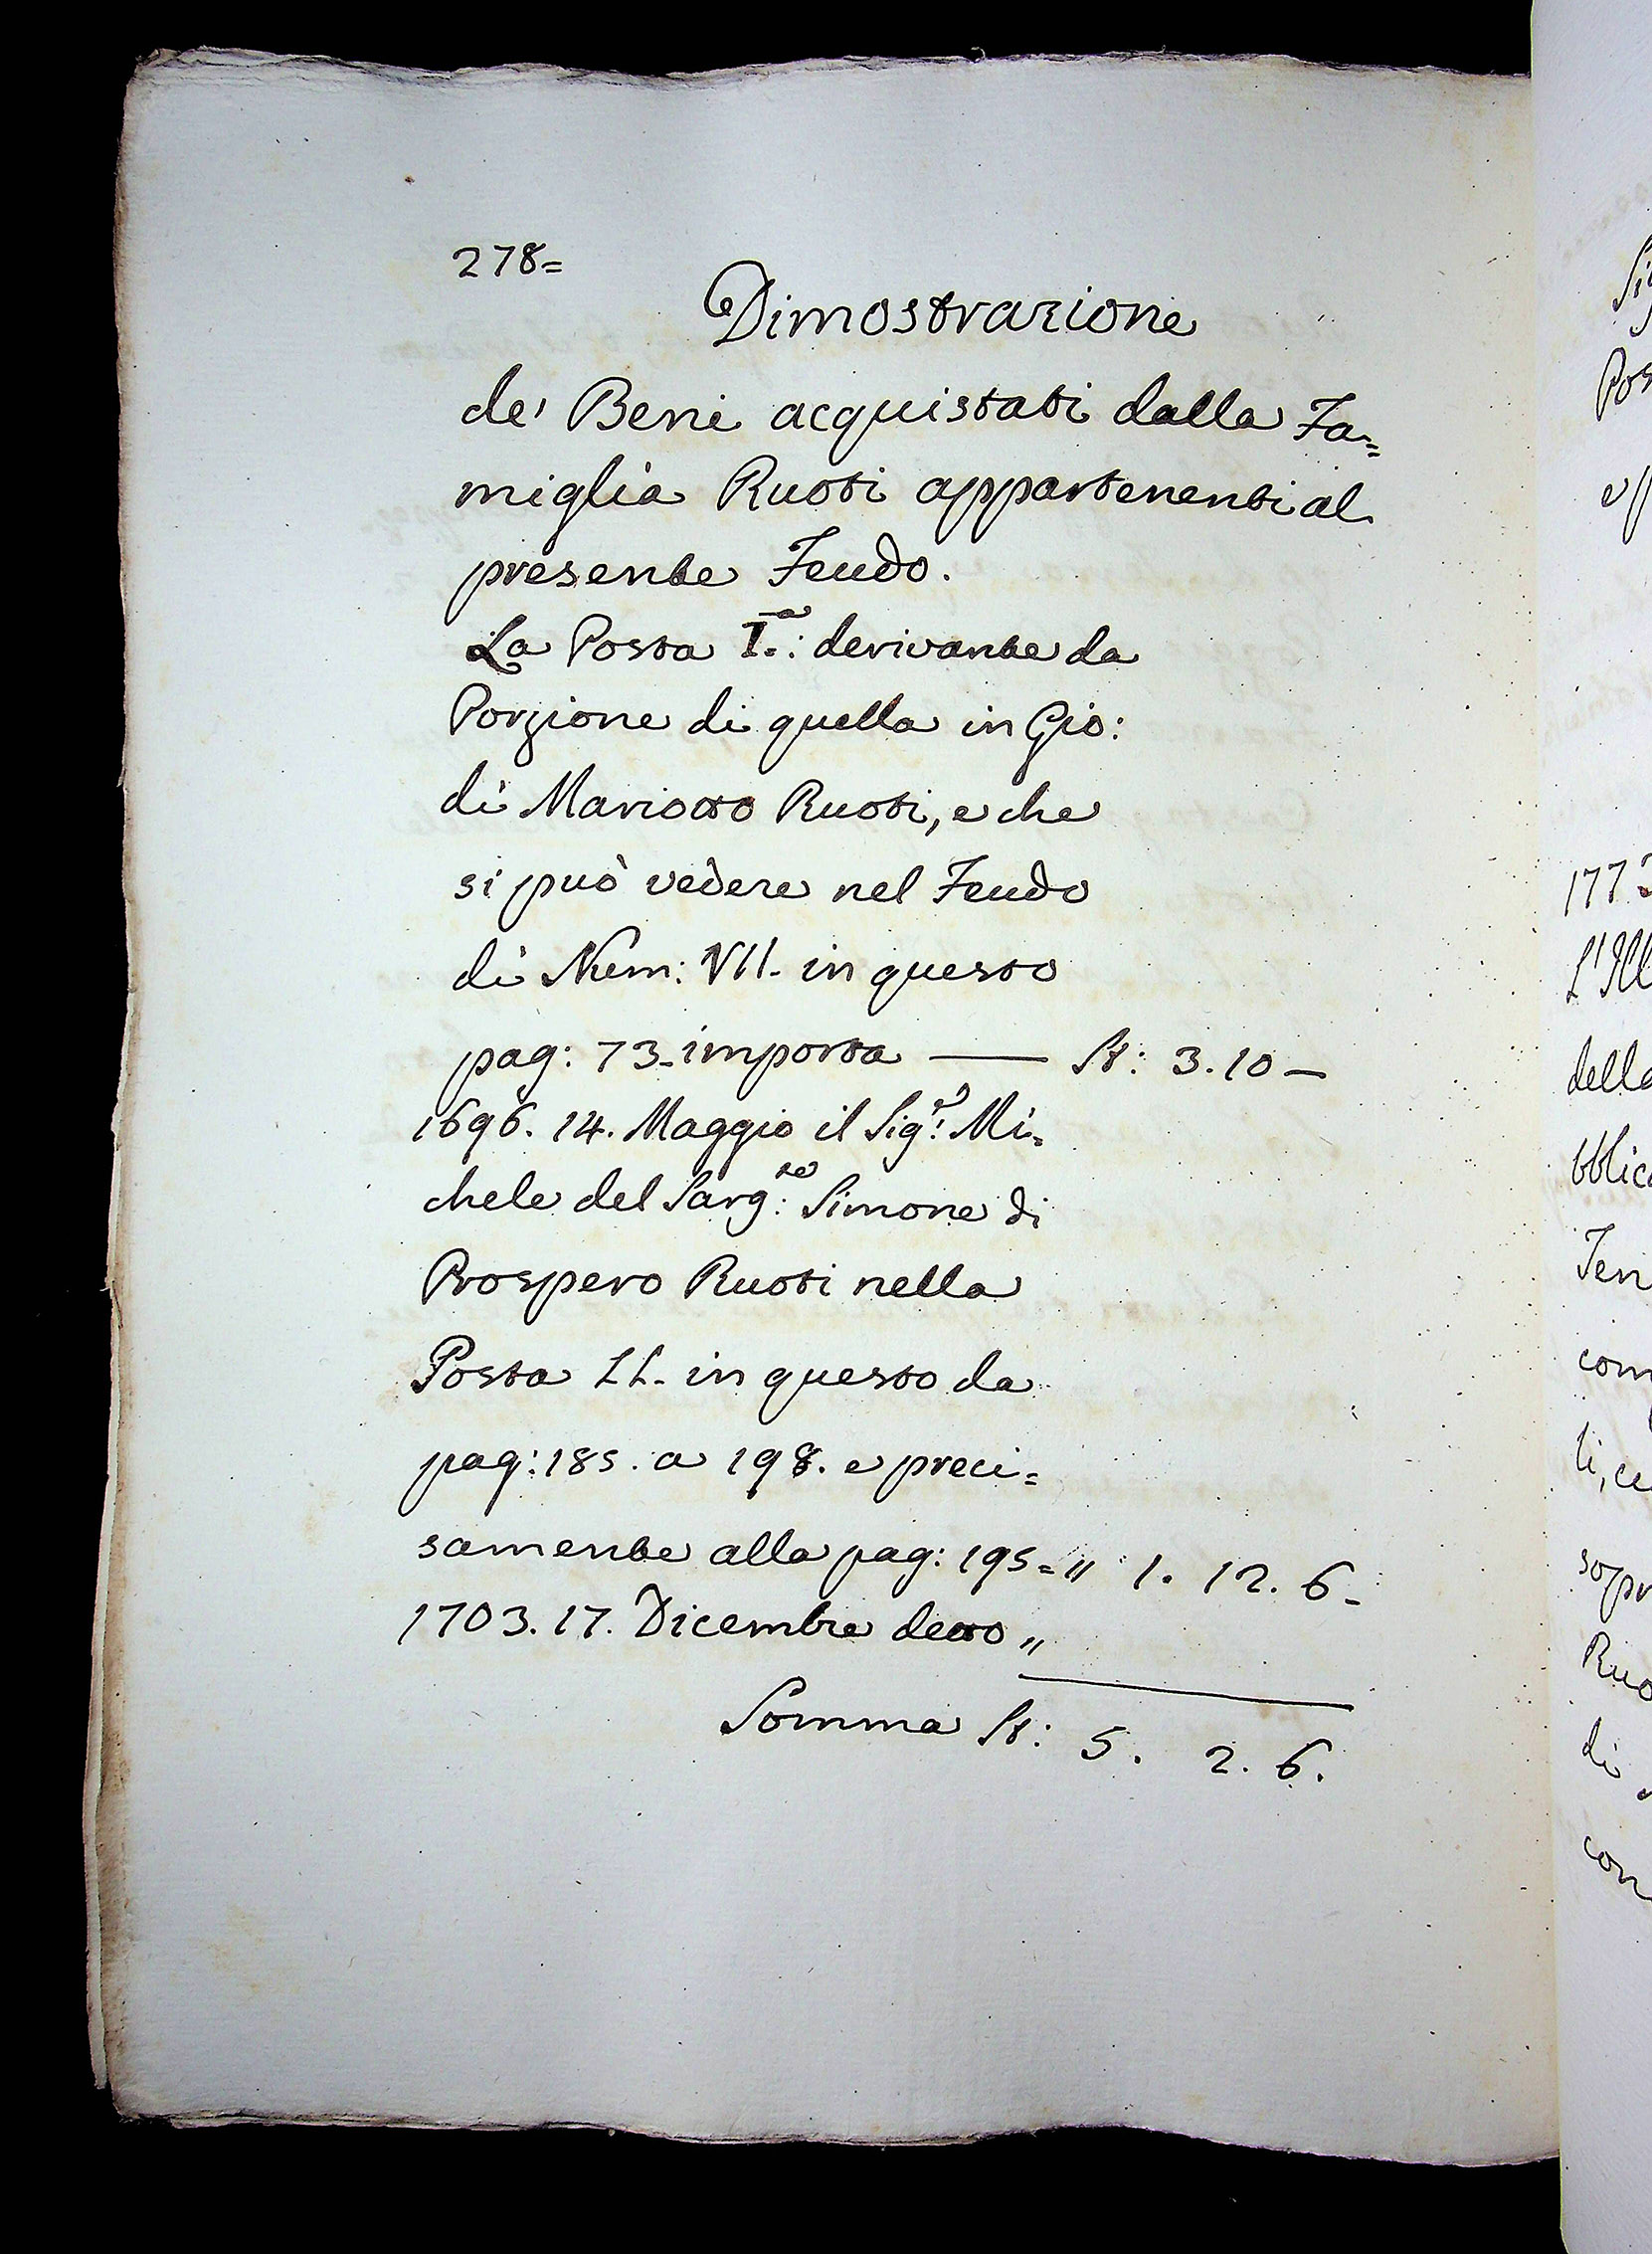 278=
Dimostrazione
de' Beni acquistati dalla Fa=
miglia Ruoti appartenenti al
presente Feudo.
La Posta I.ª: derivante da
Porzione di quella in Gio:
di Mariotto Ruoti, e che
si può vedere nel Feudo
di Num: VII. in questo
pag: 73. importa — St: 3.10 —
1696. 14. Maggio il Sig.r: Mi=
chele del Sarg:te Simone di
Prospero Ruoti nella
Posta II. in questo da
pag: 185. a 198. e preci=
samente alla pag: 195= " 1. 12. 6 -
1703. 17. Dicembre detto "
Somma St: 5. 2. 6.
Pos
177
L'Ill
della
bblic
Ten
com
li, ce
sopr
Ruo
di
con